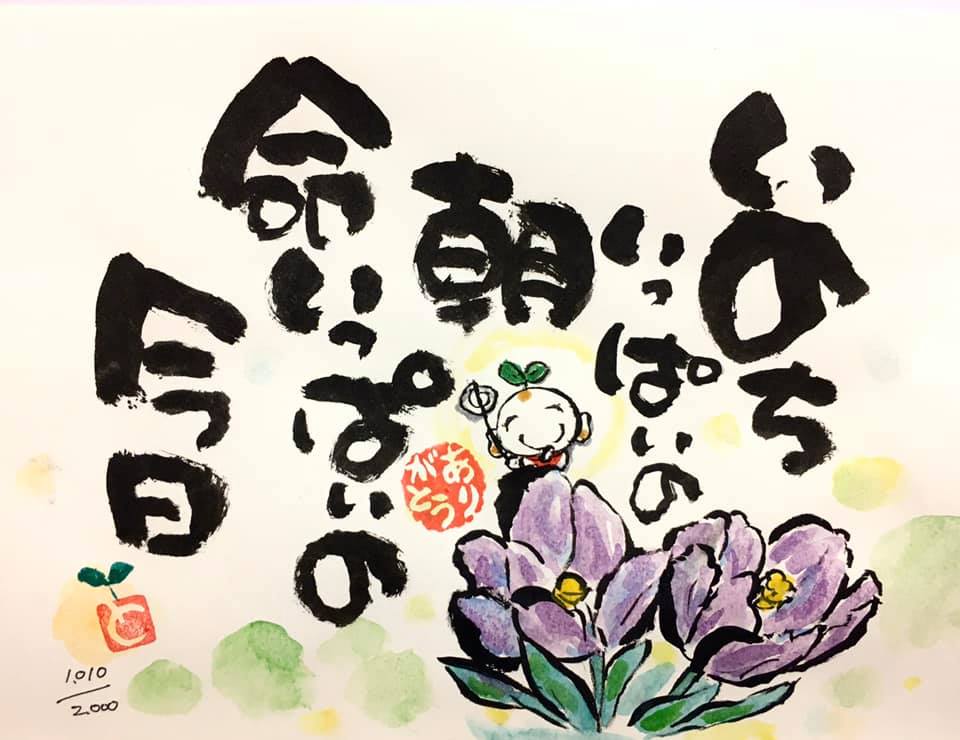 いのち
いっぱいの
朝
命いっぱいの
今日
ありがとう
と
1.010
2.000